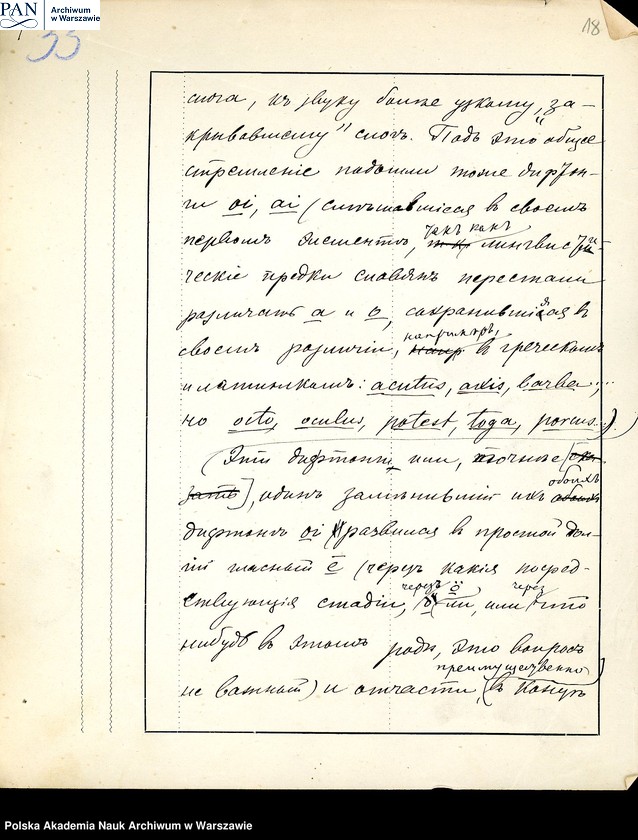 PAN
Archiwum
w Warszawie
33
18
слога, къ звуку болѣе узкому, „за-
крывавшему" слогъ. Подъ это общее
стремленіе подошли тоже дифтон-
ги oi, ai (смѣшавшіеся въ своемъ
первомъ элементѣ, такъ какъ лингвисти-
ческіе предки славянъ перестали
различать a и o, сохранившіяся въ
своемъ различіи, напримѣръ, въ греческомъ
и латинскомъ: acutus, axis, barba...
но octo, oculus, potest, toga, porcus.))
Эти дифтонги или, точнѣе
], одинъ замѣнившій ихъ обоихъ
дифтонгъ oi развился въ простой дол-
гій гласный ē (черезъ какія посред-
ствующія стадіи, черезъ ö ли, или черезъ что
нибудь въ этомъ родѣ, это вопросъ
не важный) и отчасти, (преимущественно въ концѣ
Polska Akademia Nauk Archiwum w Warszawie